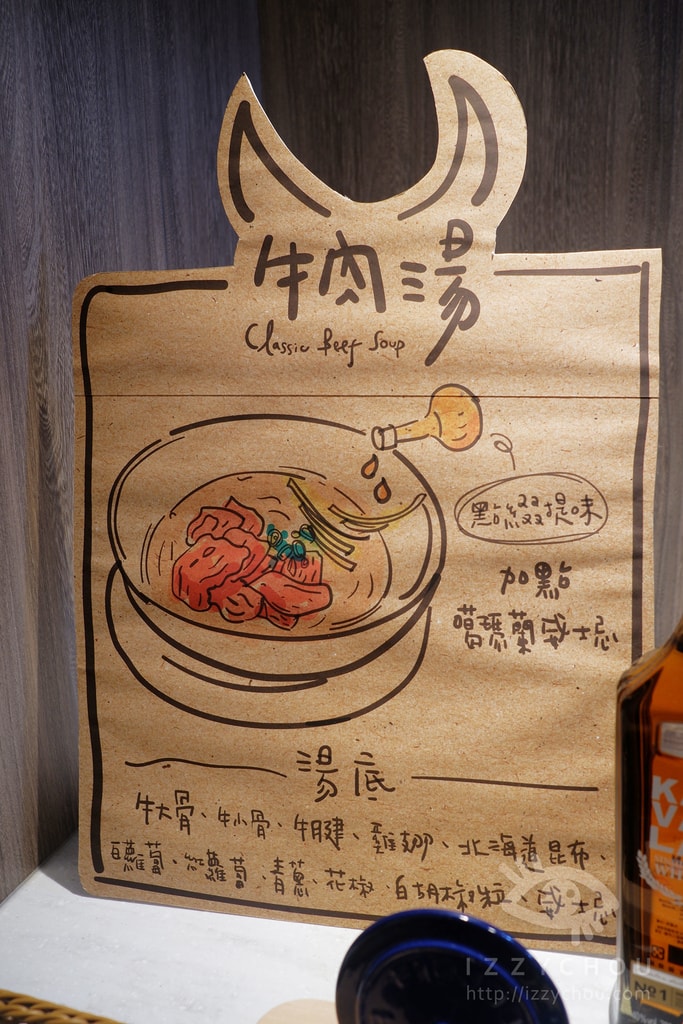 牛肉湯
Classic Beef Soup
點絲双双提味
加點
葛瑪蘭威士忌
湯底
牛大骨、牛小骨、牛腱、雞翅、北海道昆布、
白蘿蔔、紅蘿蔔、青蔥、花椒、白胡椒粒、威士忌
KAVALAN
No 1
IZZYCHOU
http://izzychou.com